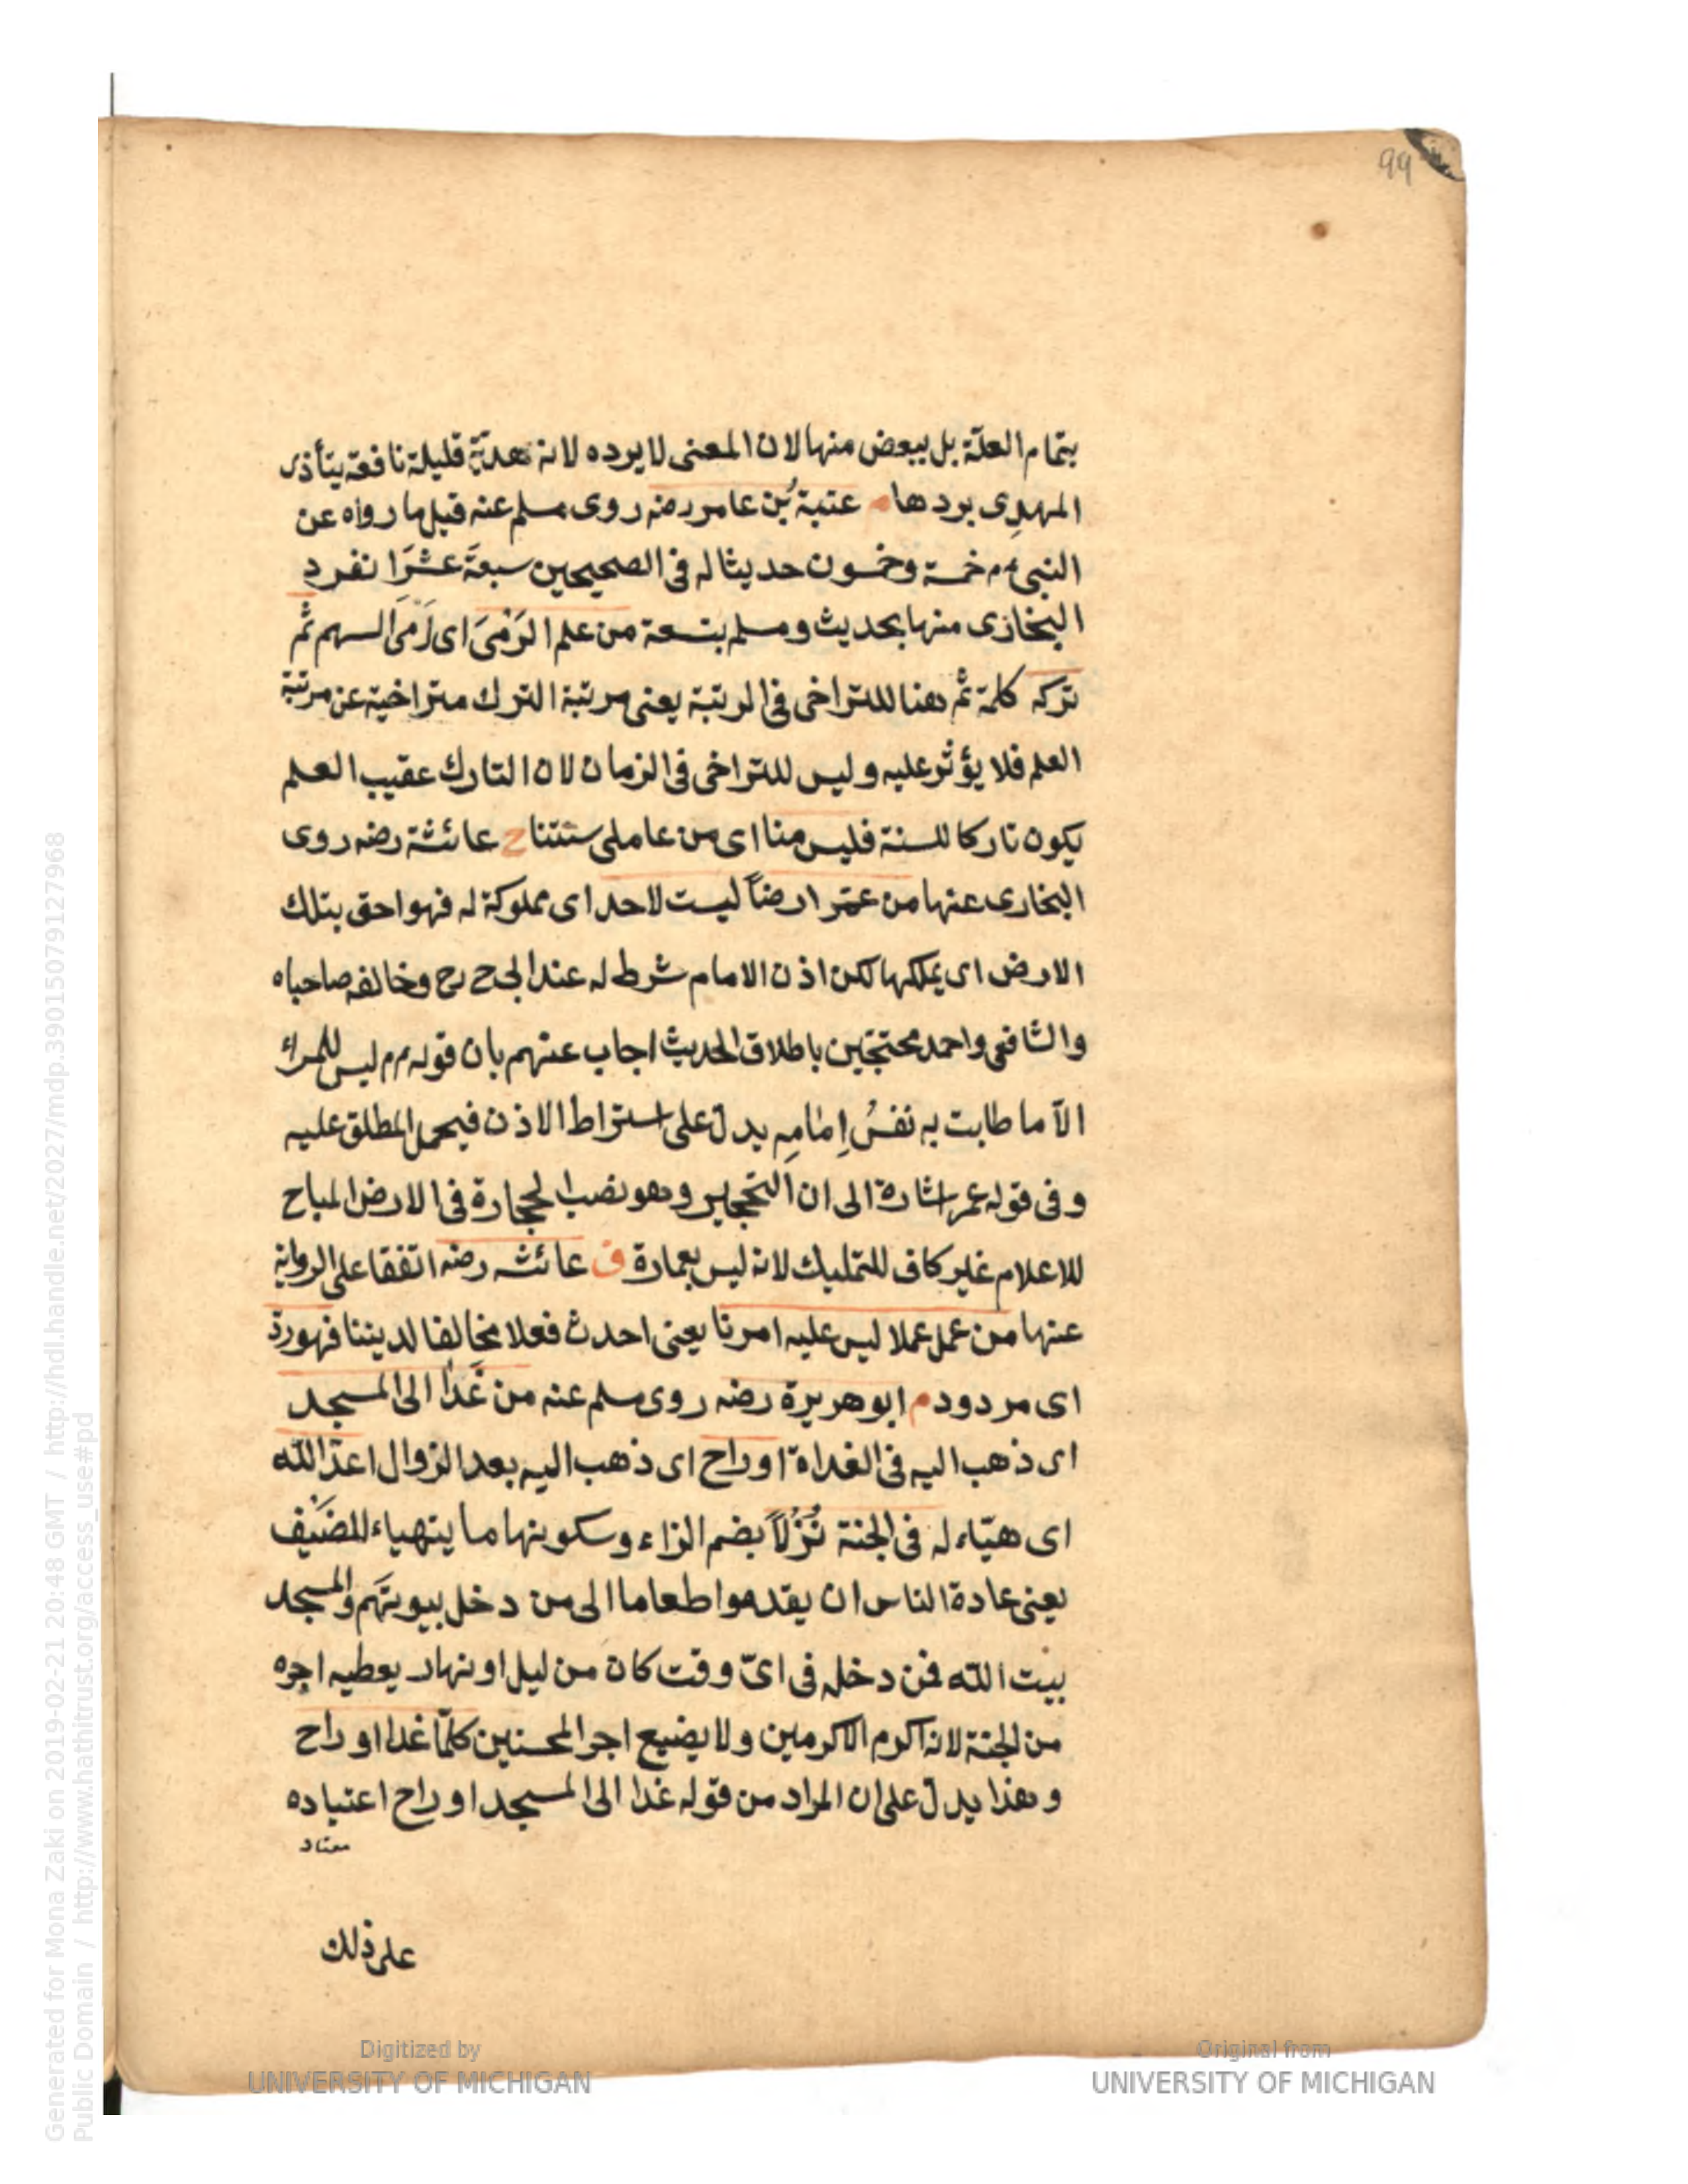 99
بتمام العلّة بل ببعض منها لان المعنى لا يرده لانه هديّة قليلة نافعة يتأذى
المهدِى بردها م عتبة بُن عامر رضه روى مسلم عنه قيل ما رواه عن
النبى عم خمسة وخمسون حديثا له فى الصحيحين سبعةَ عشَرَ انفرد
البخارى منها بحديث ومسلم بتسعة من علم الرَمْىَ اى رَمَى السهم ثم
تركه كلمة ثم هنا للتراخى فى الرتبة يعنى مرتبة الترك متراخية عن مرتبة
العلم فلا يؤثر عليه وليس للتراخى فى الزمان لان التارك عقيب العلم
يكون تاركا للسنة فليس منا اى من عاملى سنتنا خ عائشة رضه روى
البخارى عنها من عمّر ارضاً ليست لاحد اى مملوكة له فهو احق بتلك
الارض اى يملكها لكن اذن الامام شرط له عند ابى ح رح وخالفه صاحباه
والشافعى واحمد محتجّين باطلاق الحديث اجاب عنهم بان قوله عم ليس للمرء
الاّ ما طابت به نفسُ اِمامِه يدلّ على اشتراط الاذن فيحمل المطلق عليه
وفى قوله عمر اشارة الى ان التحجير وهو نصب الحجارة فى الارض المباح
للاعلام غير كاف للتمليك لانه ليس بعمارة ق عائشه رضه اتفقا على الرواية
عنها من عمل عملا ليس عليه امرنا يعنى احدث فعلا مخالفا لديننا فهو ردّ
اى مردود م ابو هريرة رضه روى مسلم عنه من غَدا الى المسجد
اى ذهب اليه فى الغداة او راح اى ذهب اليه بعد الزوال اعدّ الله
اى هيّاء له فى الجنة نُزُلاً بضم الزاء وسكونها ما يتهياء للضَيف
يعنى عادة الناس ان يقدموا طعاما الى من دخل بيوتَهم والمسجد
بيت الله فمن دخله فى اىّ وقت كان من ليل او نهار يعطيه اجره
من الجنة لانه اكرم الاكرمين ولا يضيع اجر المحسنين كلّما غدا او راح
وهذا يدلّ على ان المراد من قوله غدا الى المسجد او راح اعتياده
معتاد
على ذلك
Generated for Mona Zaki on 2019-02-21 20:48 GMT / http://hdl.handle.net/2027/mdp.39015079127968
Public Domain / http://www.hathitrust.org/access_use#pd
Digitized by
UNIVERSITY OF MICHIGAN
Original from
UNIVERSITY OF MICHIGAN